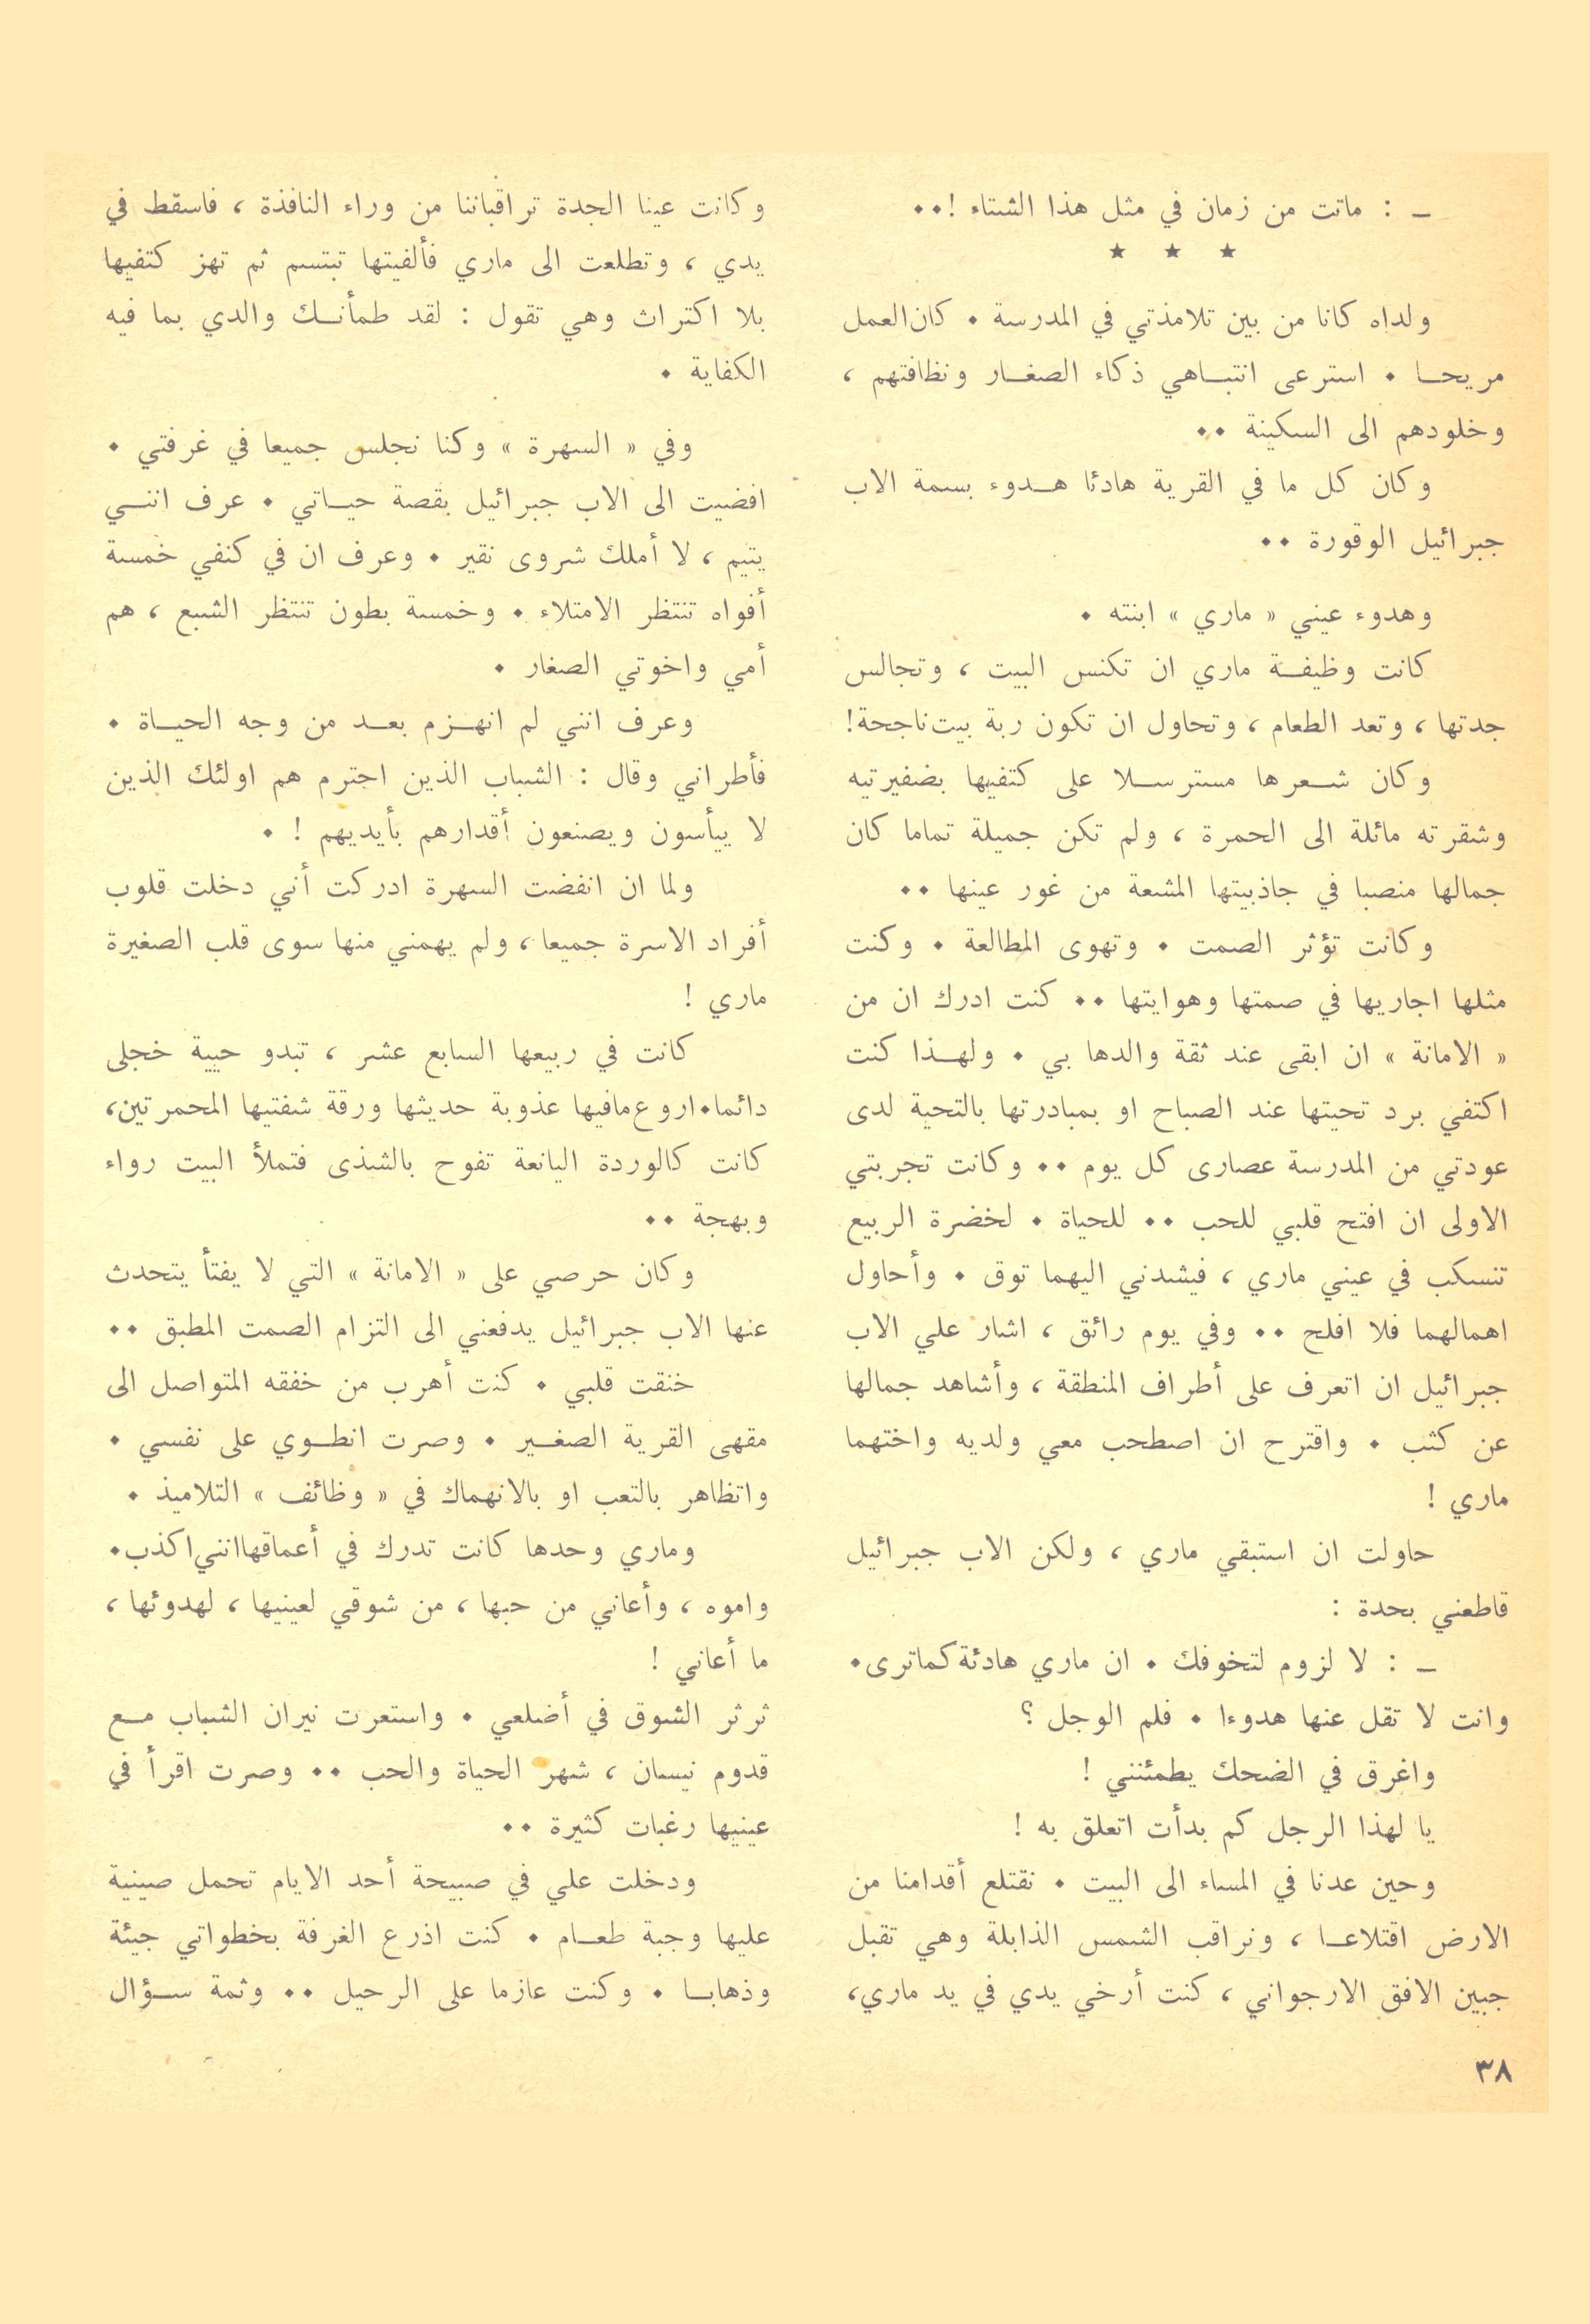 ــ : ماتت من زمان في مثل هذا الشتاء !٠٠
★ ★ ★
ولداه كانا من بين تلامذتي في المدرسة ٠ كان العمل
مريحا ٠ استرعى انتباهي ذكاء الصغار ونظافتهم ،
وخلودهم الى السكينة ٠٠
وكان كل ما في القرية هادئا هدوء بسمة الاب
جبرائيل الوقورة ٠٠
وهدوء عيني « ماري » ابنته ٠
كانت وظيفة ماري ان تكنس البيت ، وتجالس
جدتها ، وتعد الطعام ، وتحاول ان تكون ربة بيت ناجحة !
وكان شعرها مسترسلا على كتفيها بضفيرتيه
وشقرته مائلة الى الحمرة ، ولم تكن جميلة تماما كان
جمالها منصبا في جاذبيتها المشعة من غور عينها ٠٠
وكانت تؤثر الصمت ٠ وتهوى المطالعة ٠ وكنت
مثلها اجاريها في صمتها وهوايتها ٠٠ كنت ادرك ان من
« الامانة » ان ابقى عند ثقة والدها بي ٠ ولهذا كنت
اكتفي برد تحيتها عند الصباح او بمبادرتها بالتحية لدى
عودتي من المدرسة عصارى كل يوم ٠٠ وكانت تجربتي
الاولى ان افتح قلبي للحب ٠٠ للحياة ٠ لخضرة الربيع
تنسكب في عيني ماري ، فيشدني اليهما توق ٠ وأحاول
اهمالهما فلا افلح ٠٠ وفي يوم رائق ، اشار علي الاب
جبرائيل ان اتعرف على أطراف المنطقة ، وأشاهد جمالها
عن كثب ٠ واقترح ان اصطحب معي ولديه واختهما
ماري !
حاولت ان استبقي ماري ، ولكن الاب جبرائيل
قاطعني بحدة :
ــ : لا لزوم لتخوفك ٠ ان ماري هادئة كما ترى ٠
وانت لا تقل عنها هدوءا ٠ فلم الوجل ؟
واغرق في الضحك يطمئنني !
يا لهذا الرجل كم بدأت اتعلق به !
وحين عدنا في المساء الى البيت ٠ نقتلع أقدامنا من
الارض اقتلاعا ، ونراقب الشمس الذابلة وهي تقبل
جبين الافق الارجواني ، كنت أرخي يدي في يد ماري،
وكانت عينا الجدة تراقباننا من وراء النافذة ، فاسقط في
يدي ، وتطلعت الى ماري فألفيتها تبتسم ثم تهز كتفيها
بلا اكتراث وهي تقول : لقد طمأنك والدي بما فيه
الكفاية ٠
وفي « السهرة » وكنا نجلس جميعا في غرفتي ٠
افضيت الى الاب جبرائيل بقصة حياتي ٠ عرف انني
يتيم ، لا أملك شروى نقير ٠ وعرف ان في كنفي خمسة
أفواه تنتظر الامتلاء ٠ وخمسة بطون تنتظر الشبع ، هم
أمي واخوتي الصغار ٠
وعرف انني لم انهزم بعد من وجه الحياة ٠
فأطراني وقال : الشباب الذين احترم هم اولئك الذين
لا ييأسون ويصنعون أقدارهم بأيديهم ! ٠
ولما ان انفضت السهرة ادركت أني دخلت قلوب
أفراد الاسرة جميعا ، ولم يهمني منها سوى قلب الصغيرة
ماري !
كانت في ربيعها السابع عشر ، تبدو حيية خجلى
دائما٠ اروع مافيها عذوبة حديثها ورقة شفتيها المحمرتين،
كانت كالوردة اليانعة تفوح بالشذى فتملأ البيت رواء
وبهجة ٠٠
وكان حرصي على « الامانة » التي لا يفتأ يتحدث
عنها الاب جبرائيل يدفعني الى التزام الصمت المطبق ٠٠
خنقت قلبي ٠ كنت أهرب من خفقه المتواصل الى
مقهى القرية الصغير ٠ وصرت انطوي على نفسي ٠
واتظاهر بالتعب او بالانهماك في « وظائف » التلاميذ ٠
وماري وحدها كانت تدرك في أعماقها انني اكذب٠
واموه ، وأعاني من حبها ، من شوقي لعينيها ، لهدوئها ،
ما أعاني !
ثرثر الشوق في أضلعي ٠ واستعرت نيران الشباب مع
قدوم نيسان ، شهر الحياة والحب ٠٠ وصرت اقرأ في
عينيها رغبات كثيرة ٠٠
ودخلت علي في صبيحة أحد الايام تحمل صينية
عليها وجبة طعام ٠ كنت اذرع الغرفة بخطواتي جيئة
وذهابا ٠ وكنت عازما على الرحيل ٠٠ وثمة سؤال
٣٨